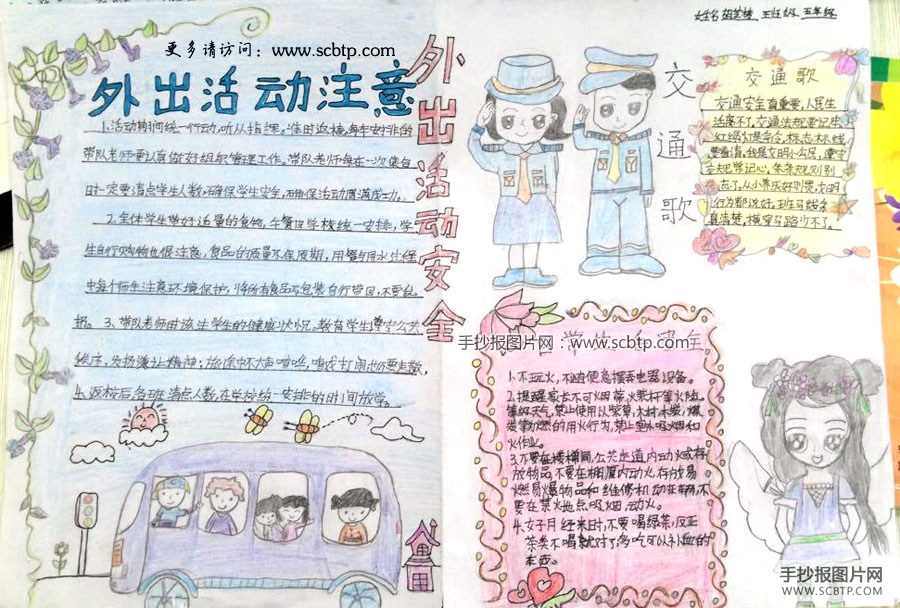 更多请访问：www.scbtp.com
外出活动注意
1、活动期间统一行动，听从指挥。准时返校，每车安排的
带队老师要认真做好组织管理工作，带队老师每在一次集合
时一定要清点学生人数，确保学生安全，确保活动圆满成功。
2、全体学生带好适量的食物，午餐由学校统一安排，学
生自行购物也很注意，食品的质量不保质期，用餐与用水过程
中每个师生注意环境保护，将所有食品与包装自行带回，不要乱
扔。3、带队老师时流注学生的健康状况，教育学生遵守公共
秩序，发扬谦让精神；旅途中不大声喧哗，嘻戏打闹也不要走散，
4、返校后各班清点人数，在学校统一安排的时间放学。
外出活动安全
女生名 班级 五年级
交通歌
交通歌
交通安全真重要，人民生
活离不了，交通法规要记牢
红绿灯是命令，标志标线
要看清，我是文明小公民，遵守
公规常记心，条条规则别
忘了，从小养成好习惯，文明
行为都说好。斑马线会
真清楚，横穿马路少不了。
手抄报图片网：www.scbtp.com
1、不玩火，不随便意摆弄电器设备。
2、提醒家长不可以烟蒂、火柴杆等火随。
3、不要在楼梯间，公共走道内动火或存
放物品，不要在棚厦内动火，存放易
燃易爆物品和维修机动车辆，不
要在禁火地点吸烟、动火。
4、女子月经来时，不要喝绿茶，反正
茶类不喝就对了，多吃可以补血的
东西。
手抄报图片网
WWW.SCBTP.COM